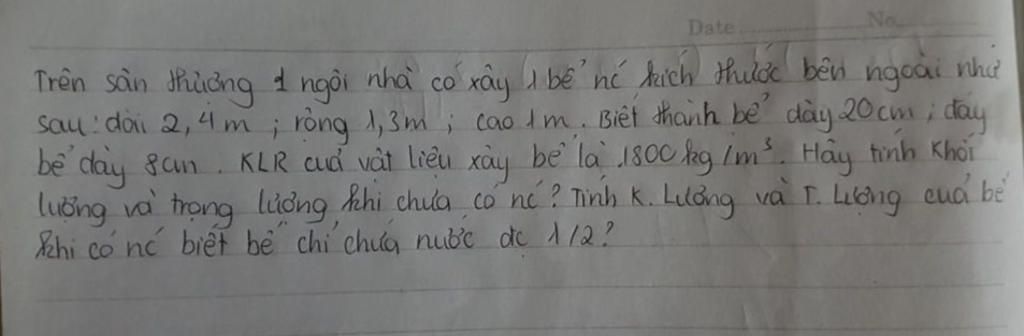 Date No
Trên sân thượng 1 ngôi nhà có xây 1 bể nc kích thước bên ngoài như
sau: dài 2,4m ; rộng 1,3m ; cao 1m. Biết thành bể dày 20cm ; đáy
bể dày 8cm. KLR của vật liệu xây bể là 1800kg/m³. Hãy tính khối
lượng và trọng lượng khi chưa có nc? Tính K. Lượng và T. Lượng của bể
khi có nc biết bể chỉ chứa nước đc 1/2?